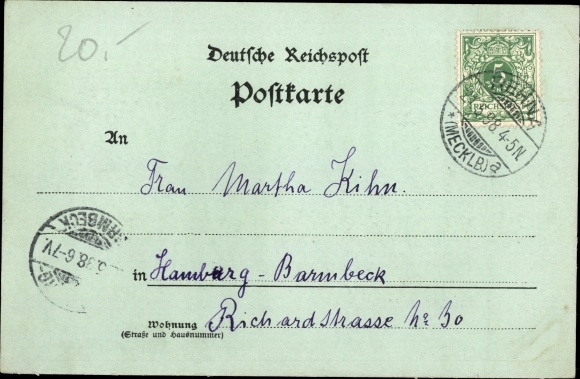 20.-
Deutsche Reichspost
Postkarte
5
REICHSPOST
98 4-5N
* (MECKLB.) a
An
Frau Martha Kihn.
BARMBECK
98.6-7V
in Hamburg - Barmbeck
Wohnung Richardstrasse No 30
(Straße und Hausnummer)